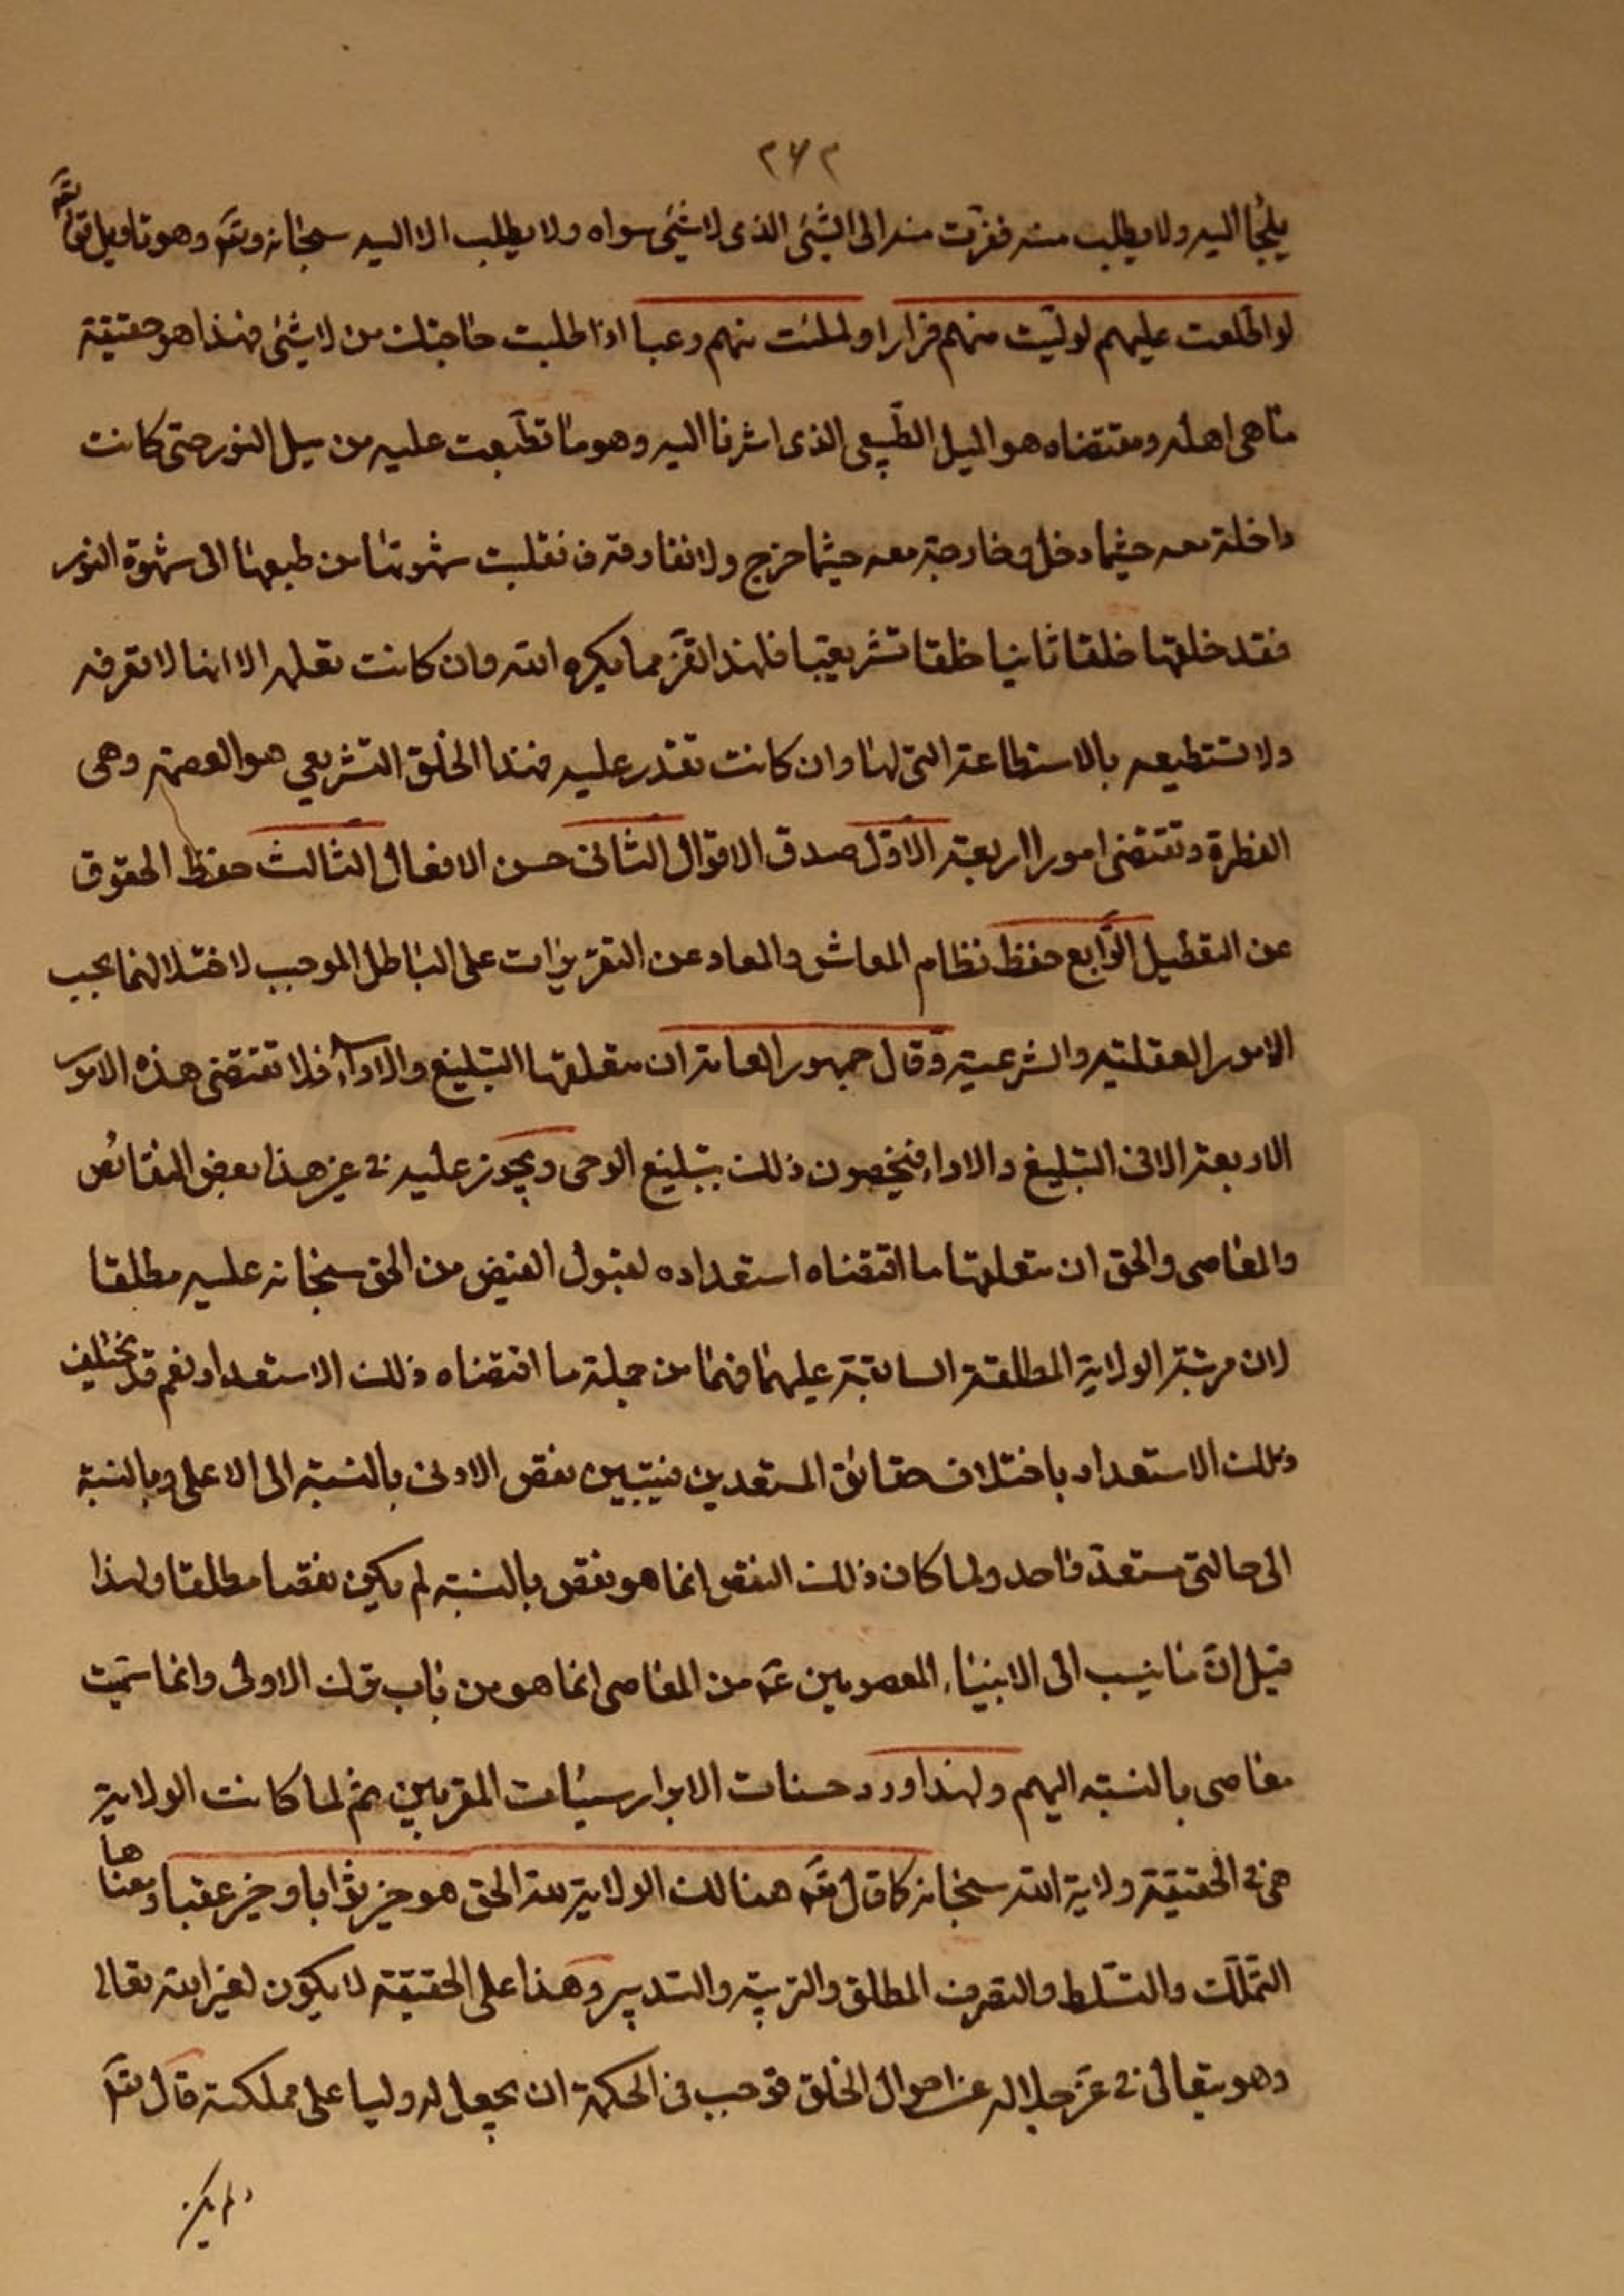 ٢٦٢
يلجأ اليه ولا يطلب منه ففرّت منه الى الشئ الذى لا شئ سواه ولا يطلب الا اليه سبحانه وتعٓ وهو تاويل قوله تعٓ
لو اطّلعت عليهم لولّيت منهم فرارا ولملئت منهم رعبا اذا طلبت حاجتك من لا شئ فهذا هو حقيقة
ما هى اهله ومقتضاه هو الميل الطّبيعى الذى اشرنا اليه وهو ما تطبّعت عليه من ميل النور حتى كانت
داخلة معه حيثما دخل وخارجة معه حيثما خرج ولا تفارقه فانقلبت شهوتها من طبعها الى شهوة النور
فقد خلقها خلقا ثانيا خلقا تشريعيا فلهذا تفرّ مما يكره الله وان كانت تعلمه الا انها لا تعرفه
ولا تستطيعه بالاستطاعة التى لها وان كانت تقدر عليه فهذا الخلق التشريعي هو العصمة وهى
الفطرة وتقتضى امورا اربعة الاوّل صدق الاقوال الثانى حسن الافعال الثالث حفظ الحقوق
عن التعطيل الرّابع حفظ نظام المعاش والمعاد عن التقريرات على الباطل الموجب لاختلالهما بحسب
الامور العقلية والشرعية وقال جمهور العامة ان متعلقها التبليغ والاداء فلا تقتضى هذه الامور
الاربعة الا فى التبليغ والاداء فيخصون ذلك بتبليغ الوحى ويجوز عليه فى غير هذا بعض النقائص
والمعاصى والحق ان متعلقها ما اقتضاه استعداده لقبول الفيض من الحق سبحانه عليه مطلقا
لان مرتبة الولاية المطلقة السابقة عليهما فهما من جملة ما اقتضاه ذلك الاستعداد نعم قد يختلف
ذلك الاستعداد باختلاف حقائق المستعدين فيتبين نقص الادنى بالنسبة الى الاعلى وبالنسبة
الى حالتى مستعدّ واحد ولما كان ذلك النقص انما هو نقص بالنسبة لم يكن نقصا مطلقا ولهذا
قيل انّ ما ينسب الى الانبياء المعصومين عٓ من المعاصى انما هو من باب ترك الاولى وانما سمّيت
معاصى بالنسبة اليهم ولهذا ورد حسنات الابرار سيئات المقربين ثم لما كانت الولاية
هى فى الحقيقة ولاية الله سبحانه كما قال تعٓ هنالك الولاية لله الحق هو خير ثوابا وخير عقبا ومعناها
التملّك والتسّلط والتصرف المطلق والتربية والتدبير وهذا على الحقيقة لا يكون لغير الله تعالى
وهو يتعالى فى عزّ جلاله عن احوال الخلق فوجب فى الحكمة ان يجعل له وليا على مملكته قال تعٓ
ولم يكن